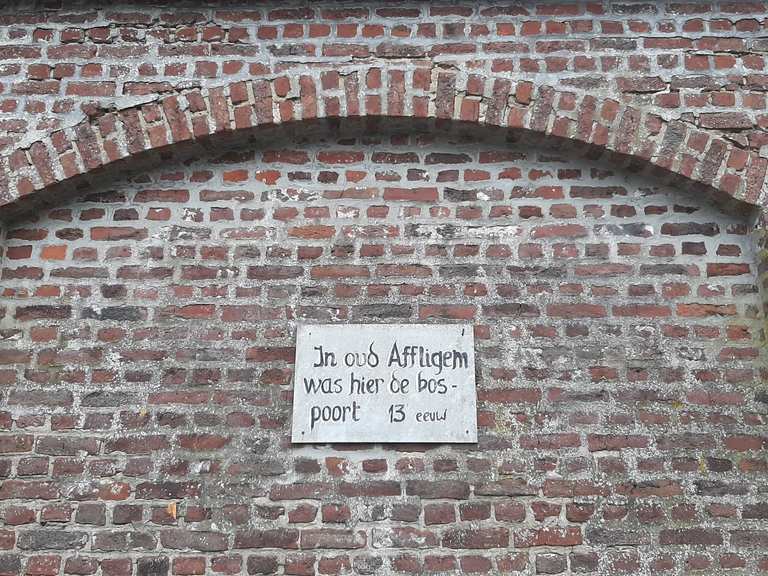 In oud Affligem
was hier de bos-
poort 13 eeuw